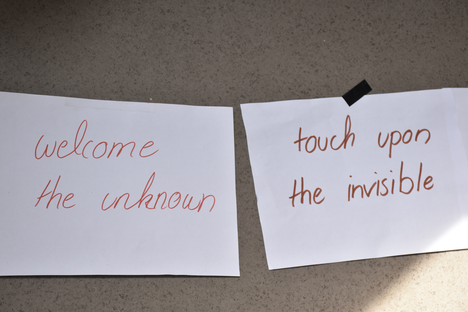 welcome
the unknown
touch upon
the invisible